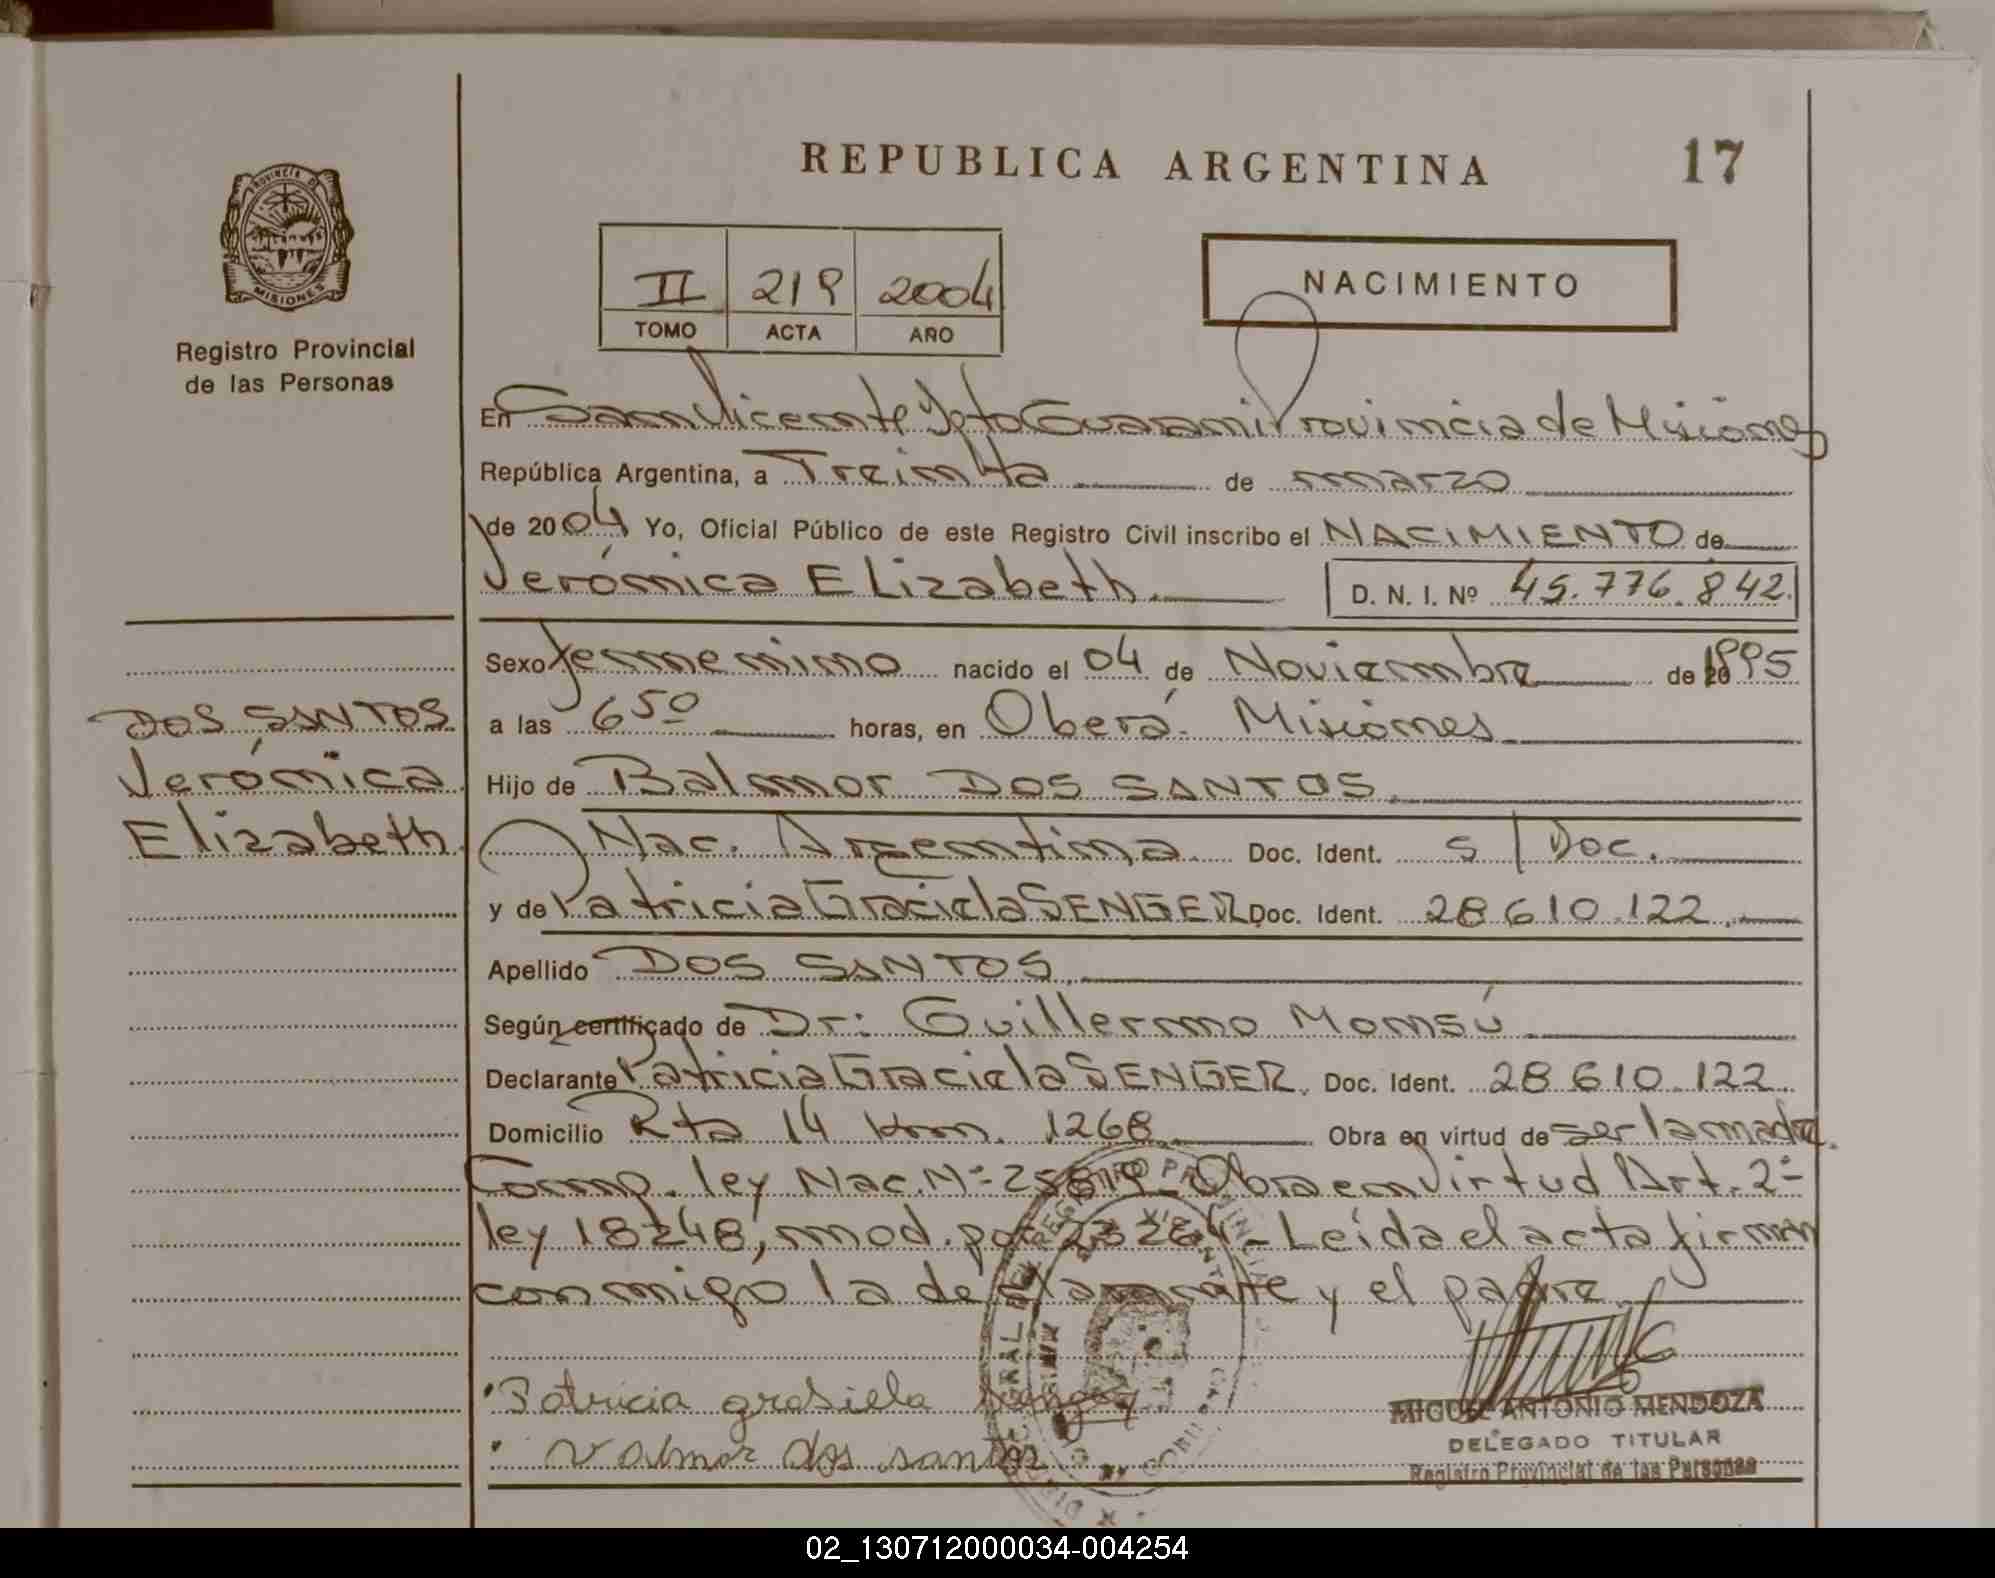 REPUBLICA ARGENTINA
17
PROVINCIA DE
MISIONES
Registro Provincial
de las Personas
II 219 2004
TOMO ACTA AÑO
NACIMIENTO
En San Vicente Dpto Guarani Provincia de Misiones
República Argentina, a Treinta de marzo
de 2004 Yo, Oficial Público de este Registro Civil inscribo el NACIMIENTO de
Verónica Elizabeth. D. N. I. Nº 45.776.842.
Sexo femenino nacido el 04 de Noviembre de 1995
a las 6 50 horas, en Oberá. Misiones
Hijo de Balmor DOS SANTOS.
Nac. Argentina Doc. Ident. s/Doc.
y de Patricia Graciela SENGER Doc. Ident. 28 610.122.
Apellido DOS SANTOS.
Según certificado de Dr: Guillermo Monsú
Declarante Patricia Graciela SENGER. Doc. Ident. 28 610.122.
Domicilio Rta 14 km. 1268 Obra en virtud de ser la madre.
Comp. ley Nac. Nº 25819 Obra en virtud Art. 2º
ley 18248, mod. por 23264 - Leída el acta firman
conmigo la declarante y el padre
DOS SANTOS
Verónica
Elizabeth.
Patricia grasiela senger
Valmor dos santos
MIGUEL ANTONIO MENDOZA
DELEGADO TITULAR
Registro Provincial de las Personas
02_130712000034-004254